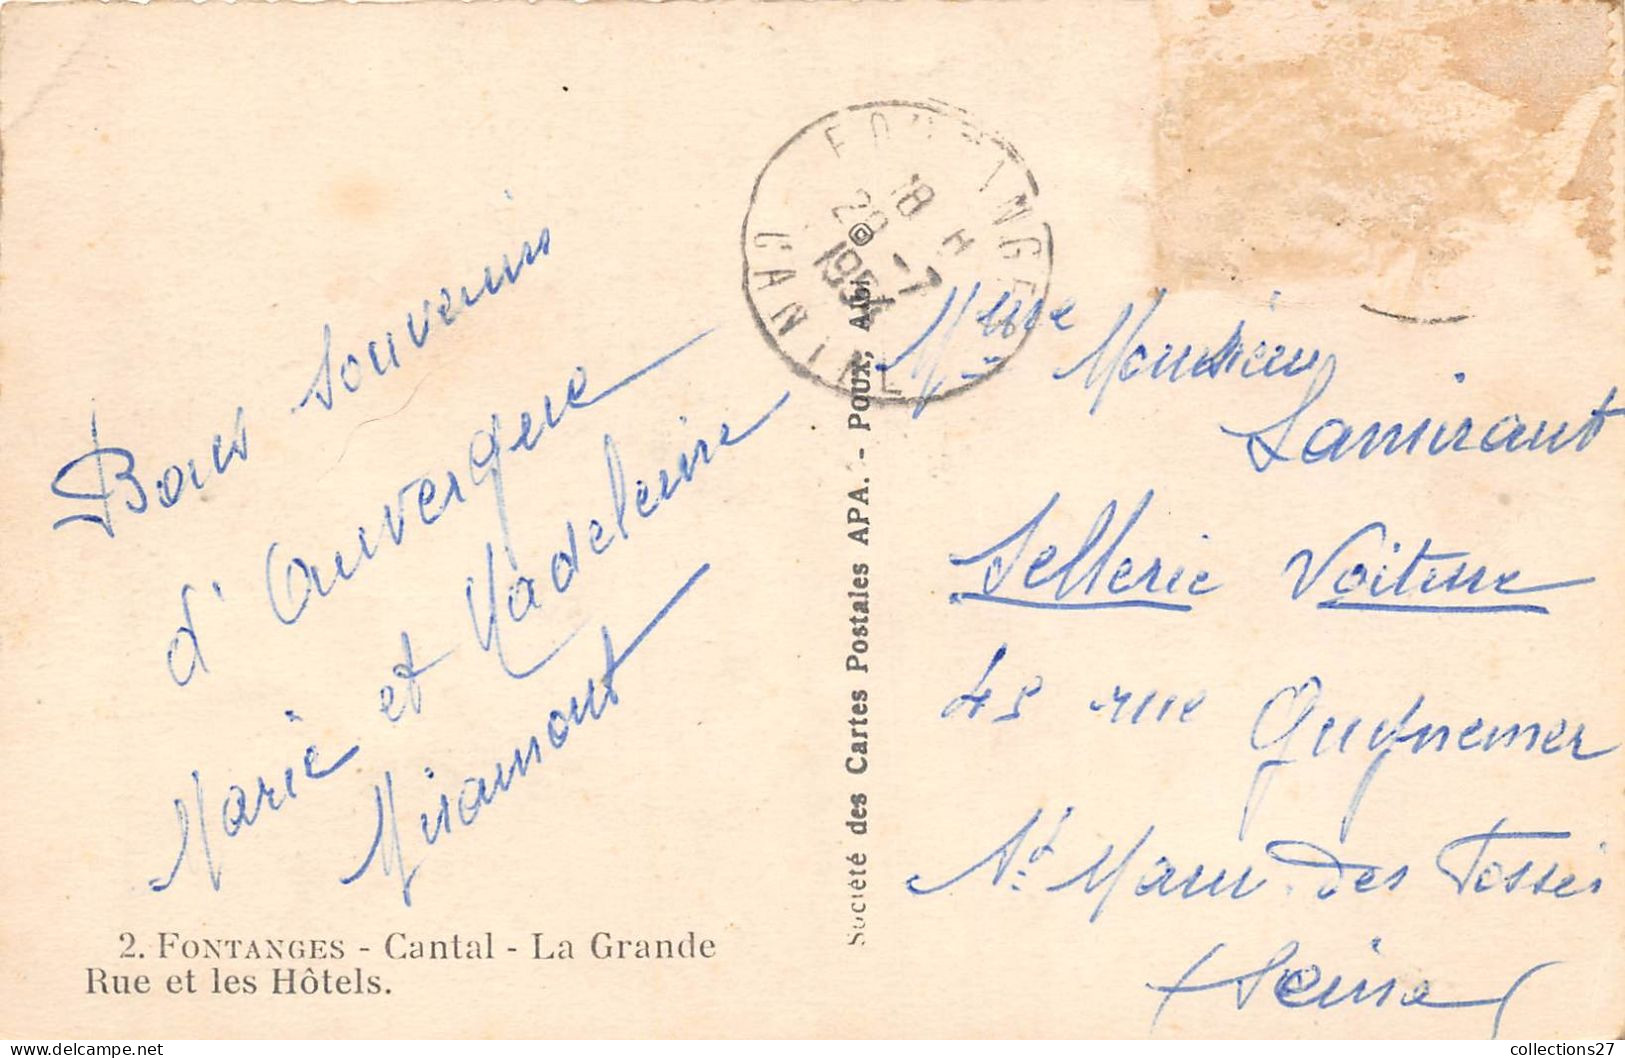 Bons souvenirs
d'Auvergne
Marie et Madeleine
Miramont
2. FONTANGES - Cantal - La Grande
Rue et les Hôtels.
Société des Cartes Postales APA. - POUX, Albi
FONTANGES
18 H
29 -7
1954
CANTAL
Mme Monsieur
Lamiraut
Sellerie Voiture
45 rue Guynemer
St Maur des Fossés
(Seine)
collections27